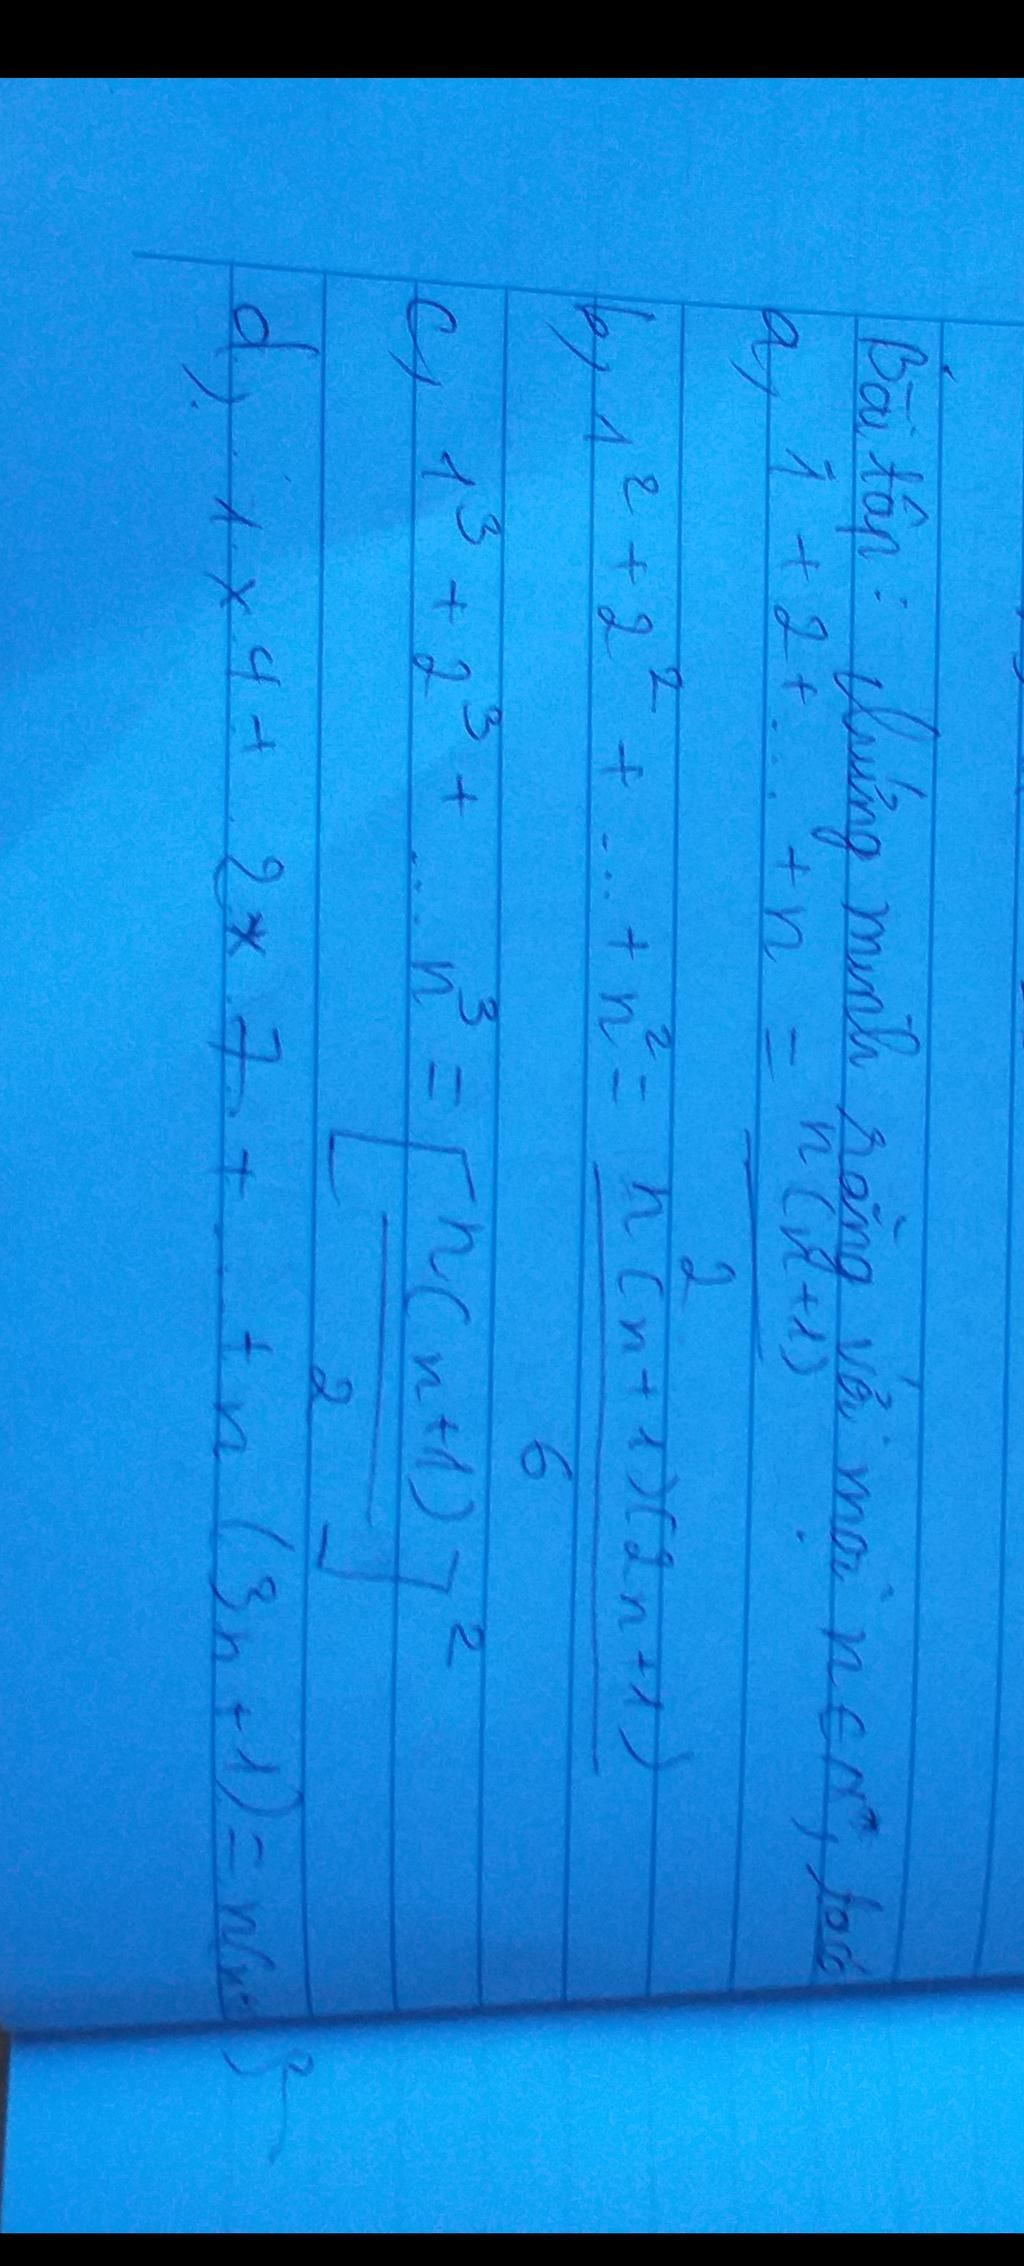 Bài tập: Chứng minh rằng với mọi n ∈ N*, ta có
a, 1 + 2 + ... + n = n(n+1)
2
b, 1² + 2² + ... + n² = n(n+1)(2n+1)
6
c, 1³ + 2³ + ... n³ = [n(n+1)]²
2
d, 1 x 4 + 2 x 7 + ... + n (3n+1) = n(n+